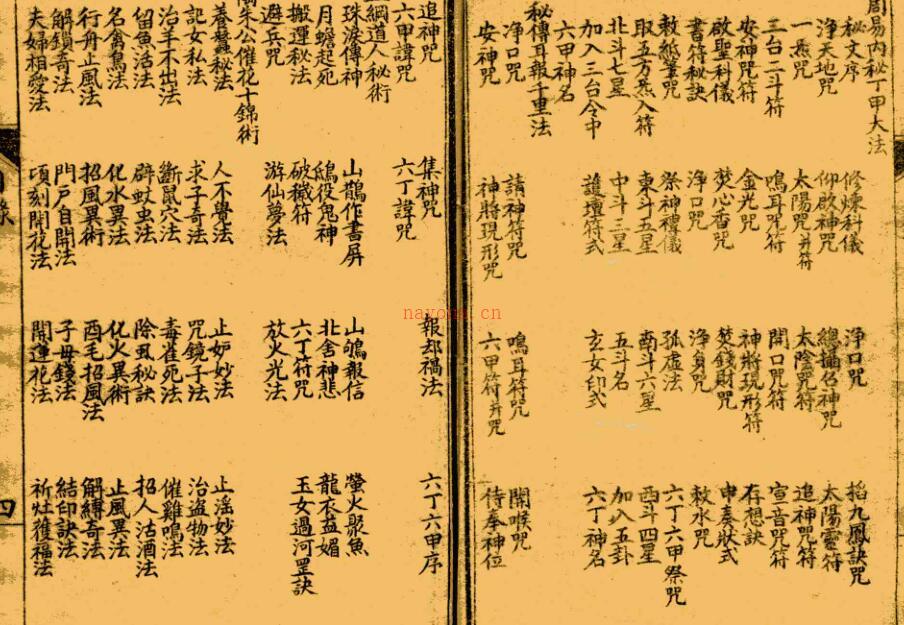 周易內秘丁甲大法
秘文序 修煉科儀 淨口咒 掐九鳳訣咒
淨天地咒 仰啟神咒 總攝召神咒 太陽靈符
一炁咒 太陽咒并符 太陰咒符 追神咒符
三台二斗符 鳴耳咒符 開口咒符 宣音咒符
安神咒符 金光咒 神將現形符 存想訣
啟聖科儀 焚心香咒 焚錢財咒 申奏狀式
書符秘訣 淨口咒 淨身咒 敕水咒
敕紙筆咒 祭神禮儀 孤虛法 六丁六甲祭咒
取五方炁入符 東斗五星 南斗六星 西斗四星
北斗七星 中斗三星 五斗名 加八五卦
加入三台令中 護壇符式 玄女印式 六丁神名
六甲神名
秘傳耳報千里法
淨口咒 請神符咒 鳴耳符咒 開喉咒
安神咒 神將現形咒 六甲符并咒 侍奉神位
追神咒 集神咒 報却禍法 六丁六甲序
六甲諱咒 六丁諱咒
綱道人秘術
珠淚傳神 山鵲作書屏 山鴝報信 螢火聚魚
月蟾起死 鴟役鬼神 北舍神悲 龍衣益媚
搬運秘法 破穢符 六丁符咒 玉女過河罡訣
避兵咒 游仙夢法 放火光法
朱公催花十錦術
養蠶秘法 人不覺法 止妒妙法 止淫妙法
記女私法 求子奇法 咒鏡子法 治盜物法
治羊不出法 斷鼠穴法 毒雀死法 催雞鳴法
留魚活法 辟蚊虫法 除虱秘訣 招人沽酒法
名禽鴛法 化水異法 化火異術 止風異法
行舟止風法 招風異術 酉毛招風法 解縛奇法
解鎖奇法 門戶自開法 子母錢法 結印訣法
夫婦相愛法 頃刻開花法 開運花法 祈灶獲福法
四
nayona.cn